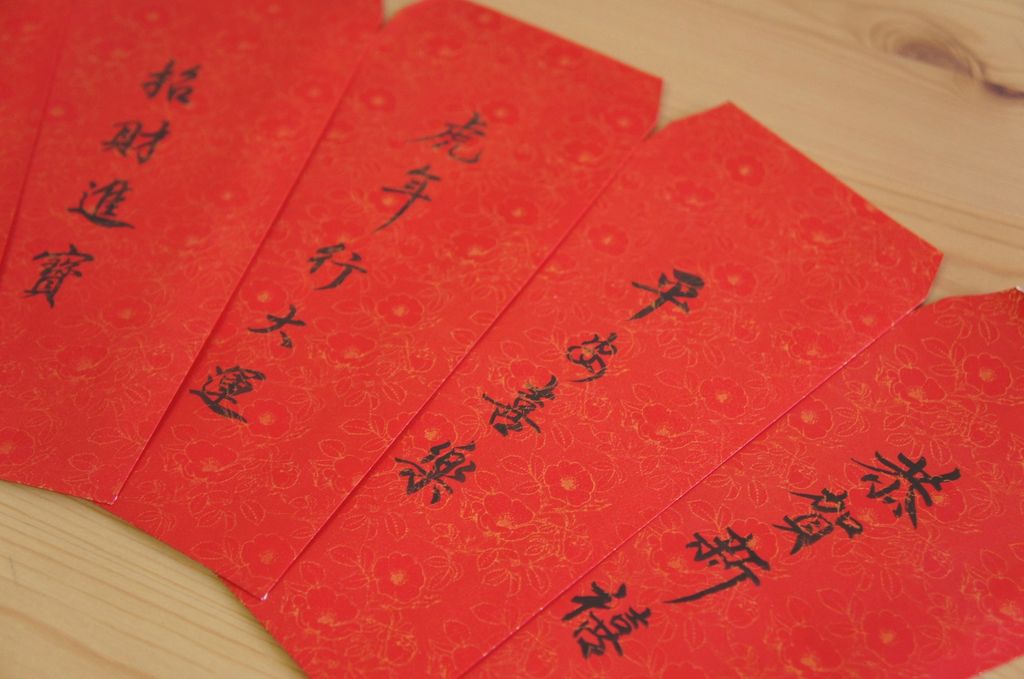 招財進寶
虎年行大運
平安喜樂
恭賀新禧